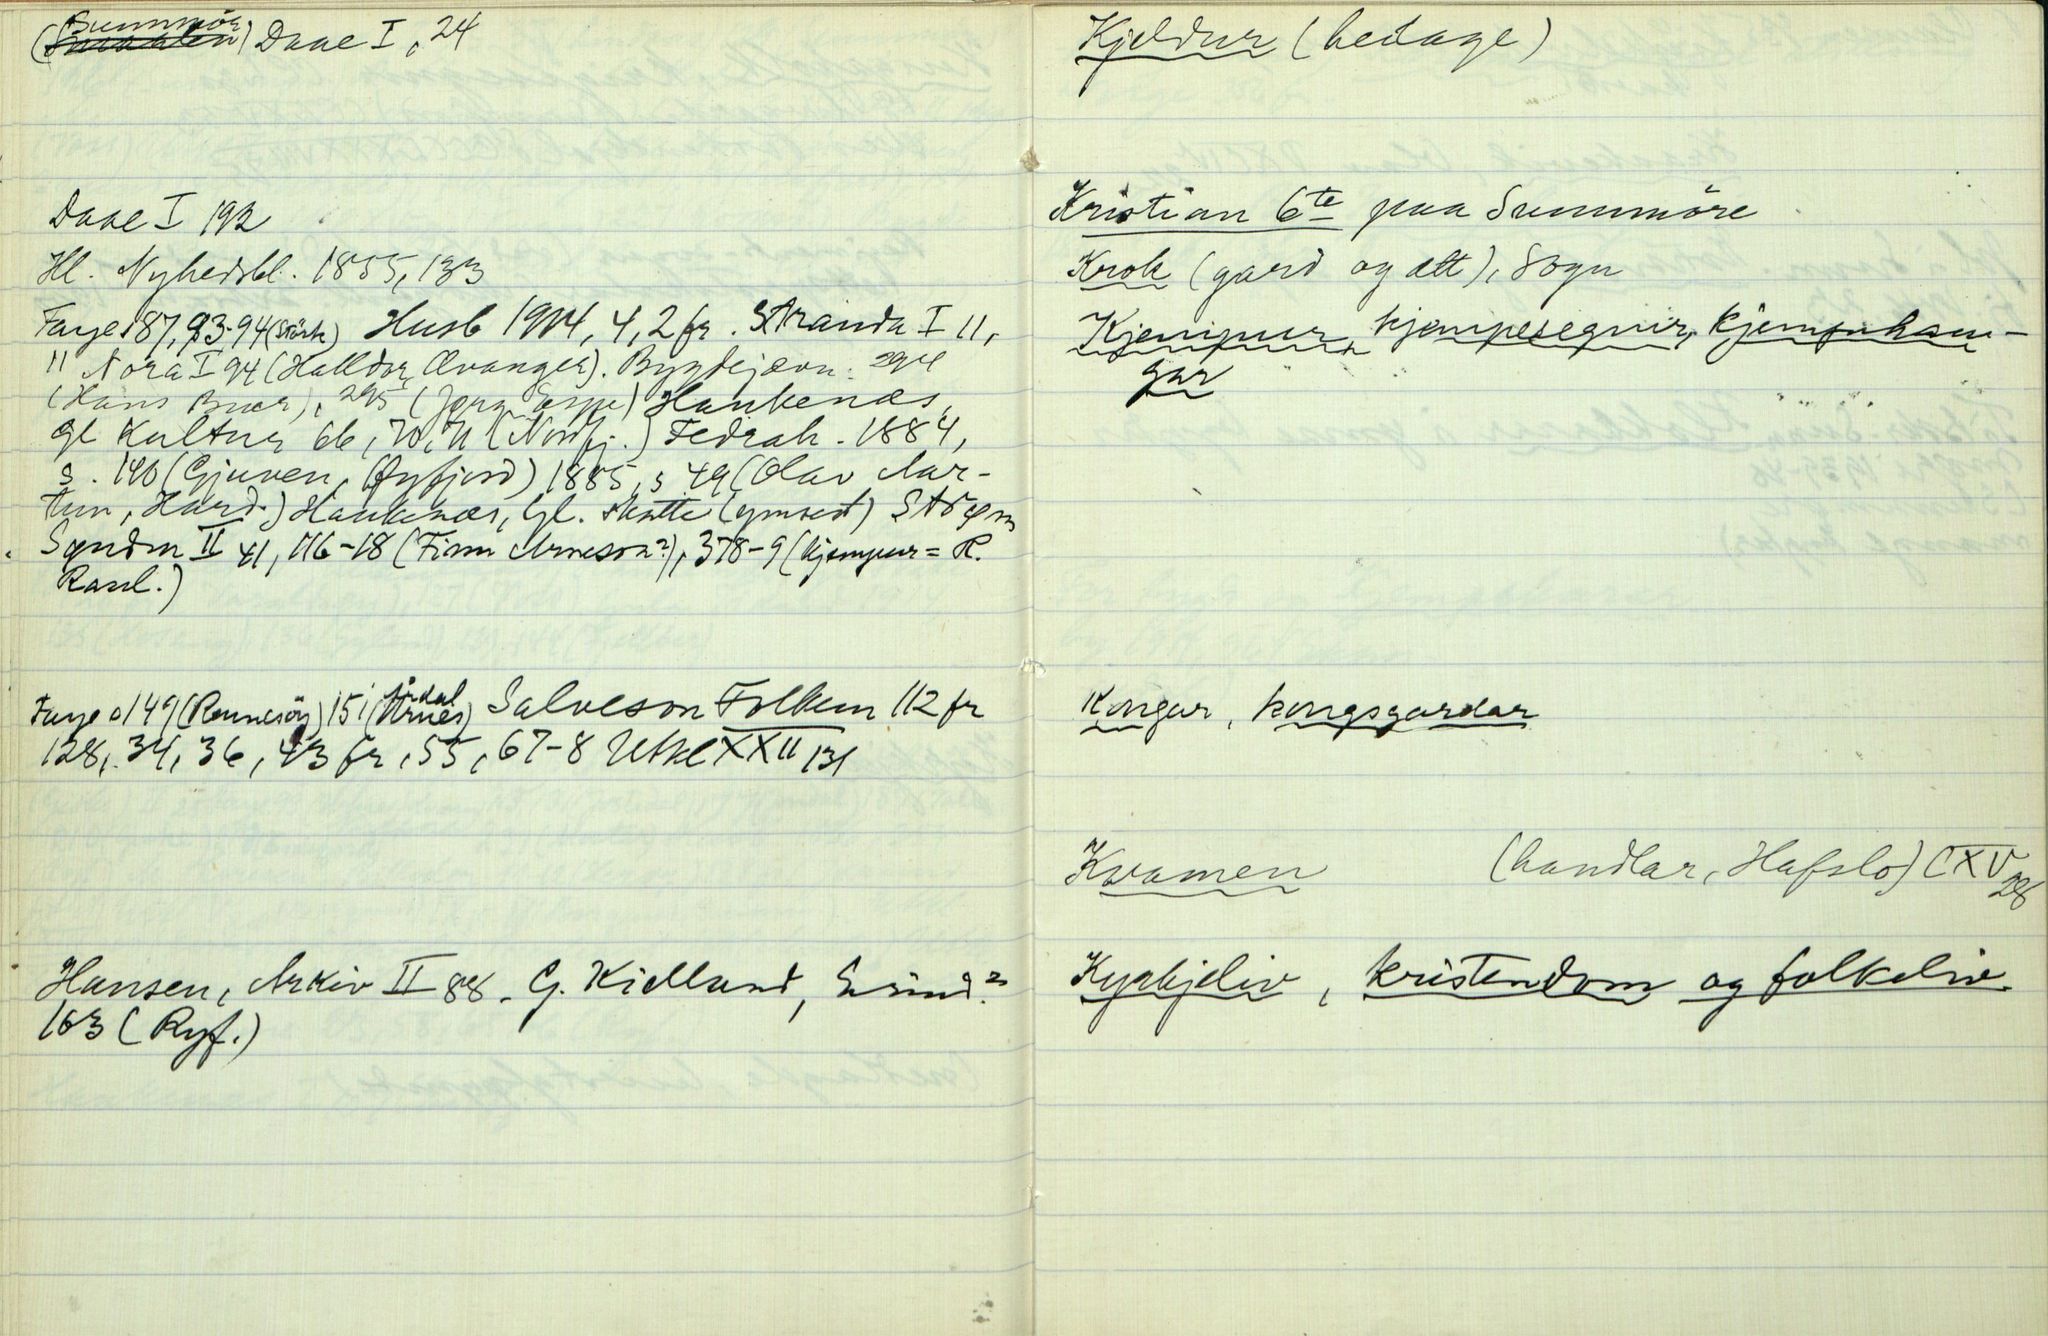 (Sunnmör) Daae I, 24
Daae I 192
Ill. Nyhedsbl. 1855, 133
Faye s 87, 93-94 (Stårk) Husb 1914, 4, 2 fr. Stranda I 11,
11 Nora I 94 (Halldor, Ævanger). Bygdejævn. 294
(Hans Buer), 295 (Jørg) Haukenæs,
gl Kultur 66, 70, 71 (Nordfj.) Fedrah. 1884,
s. 140 (Gjuven, Øyfjord) 1885, s 49 (Olav Aar-
tun, Hard.) Haukenæs, Gl. skatte (ymsest) Stöyen
Syndm II 41, 116-18 (Finn Arneson?), 378-9 (kjempur = R.
Raul.)
Faye s 149 (Rennesöy) 151 (Årdal) Salveson Folkem 112 fr
128, 34, 36, 43 fr, 55, 67-8 Utkl XXII 131
Hansen, Arkiv II 88. G. Kielland,
163 (Ryf.)
Kjeldur (hedage)
Kristian 6te paa Sunnmöre
Krok (gard og ætt), Sogn
Kjempur, kjempesegnir, kjempehau-
gar
Kongar, kongsgardar
Kvamen (handlar, Hafslo) CXV 28
Kyrkjeliv, kristendom og folkeliv.